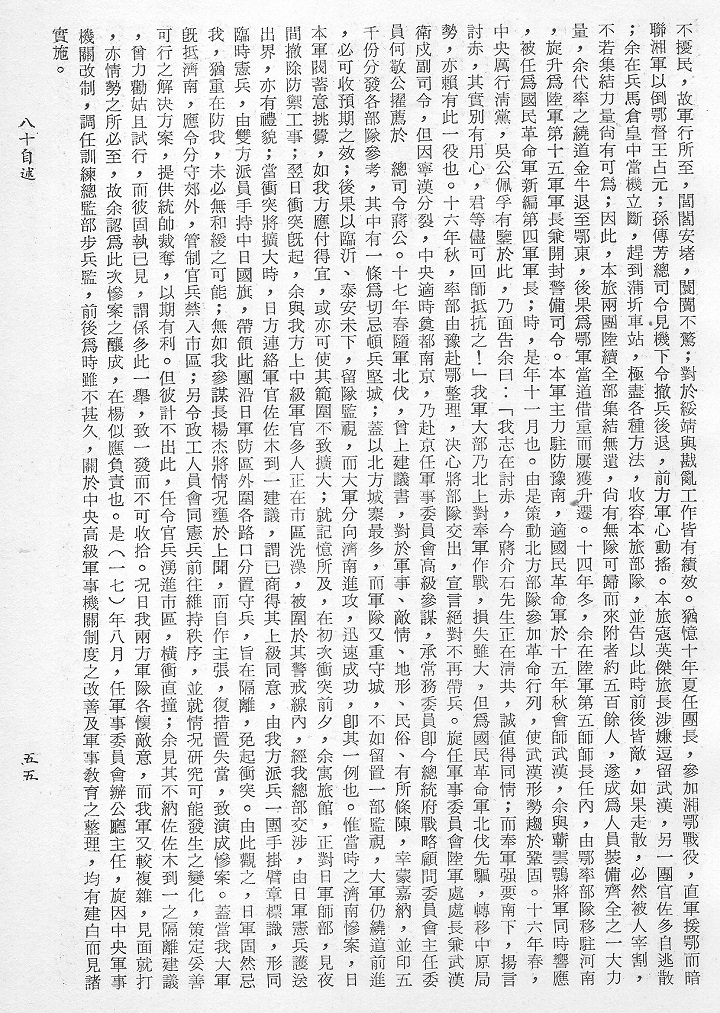 不擾民，故軍行所至，閭閻安堵，闤闠不驚；對於綏靖與戡亂工作皆有績效。猶憶十年夏任團長，參加湘鄂戰役，直軍援鄂而暗
聯湘軍以倒鄂督王占元；孫傳芳總司令見機下令撤兵後退，前方軍心動搖。本旅寇英傑旅長涉嫌逗留武漢，另一團官佐多自逃散
；余在兵馬倉皇中當機立斷，趕到蒲圻車站，極盡各種方法，收容本旅部隊，並告以此時前後皆敵，如果走散，必然被人宰割，
不若集結力量尙有可爲；因此，本旅兩團陸續全部集結無遺，尙有無隊可歸而來附者約五百餘人，遂成爲人員裝備齊全之一大力
量，余代率之繞道金牛退至鄂東，後果爲鄂軍當道借重而屢獲升遷。十四年冬，余在陸軍第五師師長任內，由鄂率部隊移駐河南
，旋升爲陸軍第十五軍軍長兼開封警備司令。本軍主力駐防豫南，適國民革命軍於十五年秋會師武漢，余與蘄雲鶚將軍同時響應
，被任爲國民革命軍新編第四軍軍長；時，是年十一月也。由是策動北方部隊參加革命行列，使武漢形勢趨於鞏固。十六年春，
中央厲行淸黨，吳公佩孚有鑒於此，乃面告余曰：「我志在討赤，今蔣介石先生正在淸共，誠値得同情；而奉軍强要南下，揚言
討赤，其實別有用心，君等儘可回師抵抗之！」我軍大部乃北上對奉軍作戰，損失雖大，但爲國民革命軍北伐先驅，轉移中原局
勢，亦賴有此一役也。十六年秋，率部由豫赴鄂整理，決心將部隊交出，宣言絕對不再帶兵。旋任軍事委員會陸軍處處長兼武漢
衛戍副司令，但因寧漢分裂，中央適時奠都南京，乃赴京任軍事委員會高級參謀，承常務委員卽今總統府戰略顧問委員會主任委
員何敬公擢薦於　總司令蔣公。十七年春隨軍北伐，曾上建議書，對於軍事、敵情、地形、民俗、有所條陳，幸蒙嘉納，並印五
千份分發各部隊參考，其中有一條爲切忌頓兵堅城；蓋以北方城寨最多，而軍隊又重守城，不如留置一部監視，大軍仍繞道前進
，必可收預期之效；後果以臨沂、泰安未下，留隊監視，而大軍分向濟南進攻，迅速成功，卽其一例也。惟當時之濟南慘案，日
本軍閥蓄意挑釁，如我方應付得宜，或亦可使其範圍不致擴大；就記憶所及，在初次衝突前夕，余寓旅館，正對日軍師部，見夜
間撤除防禦工事；翌日衝突旣起，余與我方上中級軍官多人正在市區洗澡，被圍於其警戒線內，經我總部交涉，由日軍憲兵護送
出界，亦有禮貌；當衝突將擴大時，日方連絡軍官佐佐木到一建議，謂已商得其上級同意，由我方派兵一團手掛臂章標識，形同
臨時憲兵，由雙方派員手持中日國旗，帶領此團沿日軍防區外圍各路口分置守兵，旨在隔離，免起衝突。由此觀之，日軍固然忌
我，猶重在防我，未必無和緩之可能；無如我參謀長楊杰將情况壅於上聞，而自作主張，復措置失當，致演成慘案。蓋當我大軍
旣抵濟南，應令分守郊外，管制官兵禁入市區；另令政工人員會同憲兵前往維持秩序，並就情况研究可能發生之變化，策定妥善
可行之解決方案，提供統帥裁奪，以期有利。但彼計不出此，任令官兵湧進市區，橫衝直撞；余見其不納佐佐木到一之隔離建議
，曾力勸姑且試行，而彼固執已見，謂係多此一舉，致一發而不可收拾。况日我兩方軍隊各懷敵意，而我軍又較複雜，見面就打
，亦情勢之所必至，故余認爲此次慘案之釀成，在楊似應負責也。是（一七）年八月，任軍事委員會辦公廳主任，旋因中央軍事
機關改制，調任訓練總監部步兵監，前後爲時雖不甚久，關於中央高級軍事機關制度之改善及軍事敎育之整理，均有建白而見諸
實施。
八十自述
五五